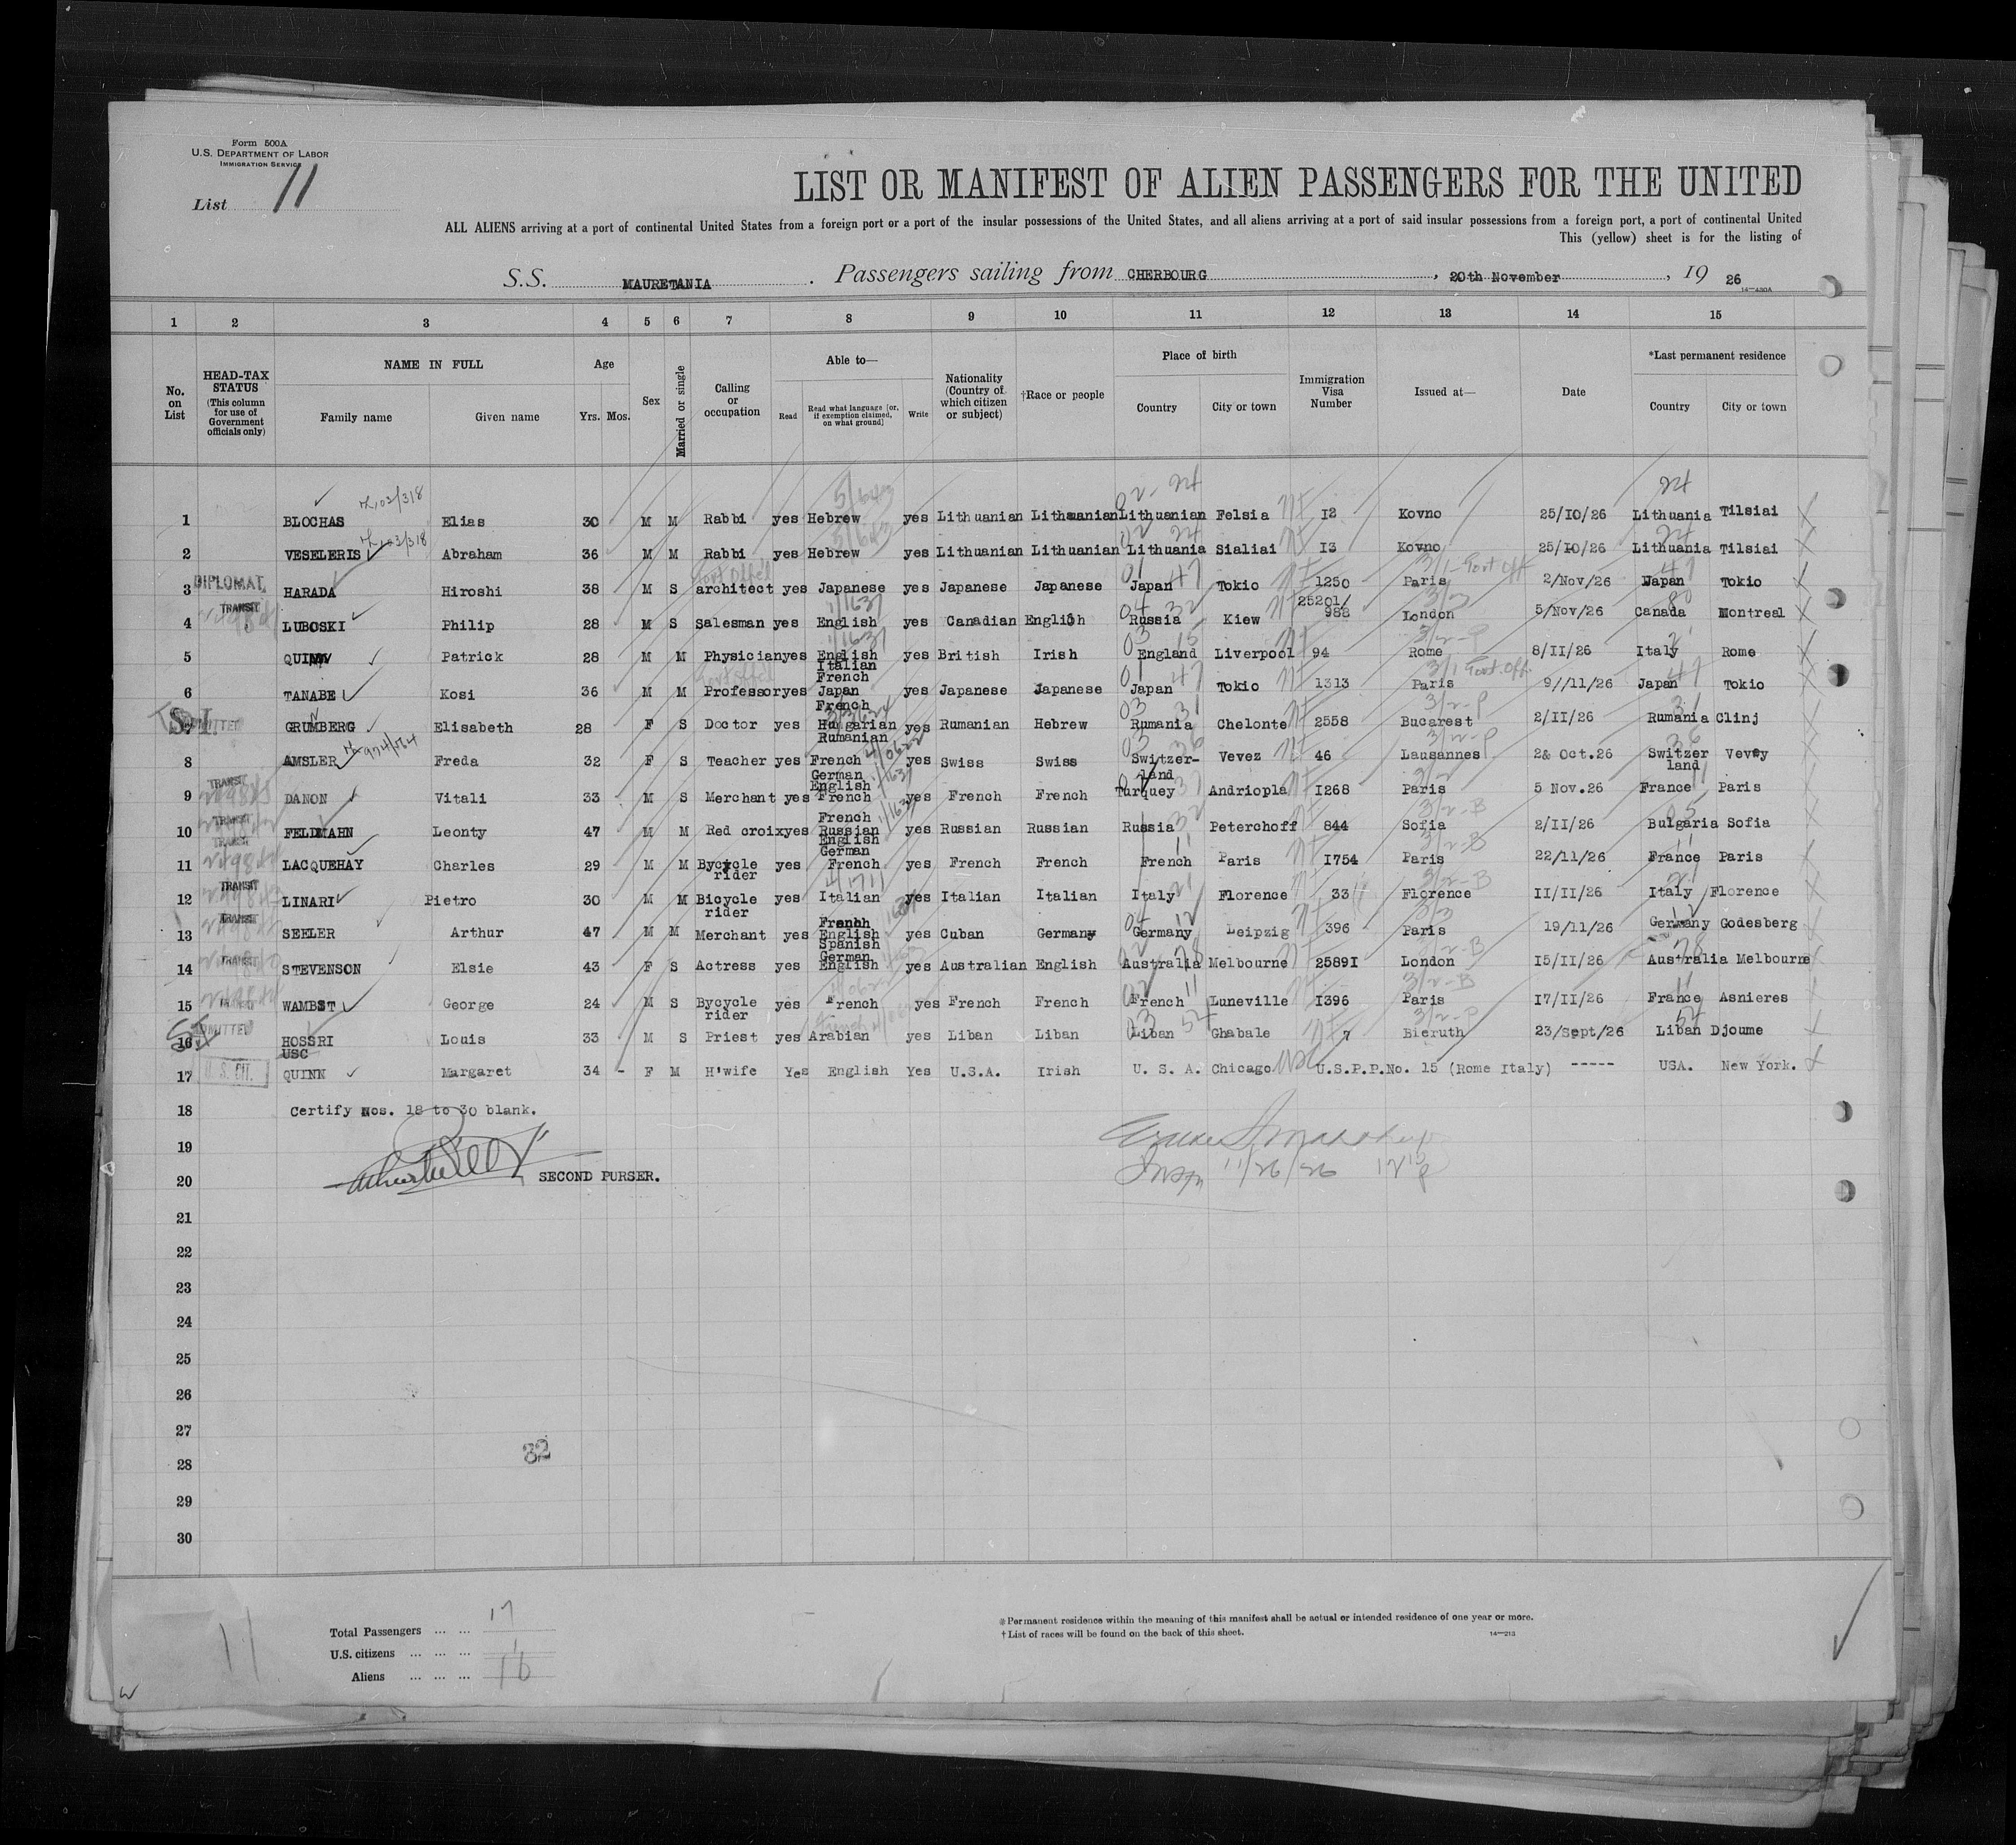 Form 500A
U.S. DEPARTMENT OF LABOR
IMMIGRATION SERVICE
List 11
LIST OR MANIFEST OF ALIEN PASSENGERS FOR THE UNITED
ALL ALIENS arriving at a port of continental United States from a foreign port or a port of the insular possessions of the United States, and all aliens arriving at a port of said insular possessions from a foreign port, a port of continental United
This (yellow) sheet is for the listing of
S.S. MAURETANIA. Passengers sailing from CHERBOURG, 20th November, 19 26
14-430A
1 2 3 4 5 6 7 8 9 10 11 12 13 14 15
No. on List
HEAD-TAX STATUS (This column for use of Government officials only)
NAME IN FULL
Family name Given name
Age
Yrs. Mos.
Sex
Married or single
Calling or occupation
Able to—
Read
Read what language [or, if exemption claimed, on what ground]
Write
Nationality (Country of which citizen or subject)
†Race or people
Place of birth
Country City or town
Immigration Visa Number
Issued at—
Date
*Last permanent residence
Country City or town
1 BLOCHAS Elias 30 M M Rabbi yes Hebrew yes Lithuanian Lithuanian Lithuanian Felsia I2 Kovno 25/IO/26 Lithuania Tilsiai
2 VESELERIS Abraham 36 M M Rabbi yes Hebrew yes Lithuanian Lithuanian Lithuania Sialiai I3 Kovno 25/IO/26 Lithuania Tilsiai
3 DIPLOMAT HARADA Hiroshi 38 M S architect yes Japanese yes Japanese Japanese Japan Tokio 1250 Paris 2/Nov/26 Japan Tokio
4 TRANSIT LUBOSKI Philip 28 M S Salesman yes English yes Canadian English Russia Kiew 25201/988 London 5/Nov/26 Canada Montreal
5 QUINN Patrick 28 M M Physician yes English Italian French yes British Irish England Liverpool 94 Rome 8/II/26 Italy Rome
6 TANABE Kosi 36 M M Professor yes Japan French yes Japanese Japanese Japan Tokio 1313 Paris 9//11/26 Japan Tokio
7 SI ADMITTED GRUMBERG Elisabeth 28 F S Doctor yes Hugarian Rumanian yes Rumanian Hebrew Rumania Chelonte 2558 Bucarest 2/II/26 Rumania Clinj
8 AMSLER Freda 32 F S Teacher yes French German English yes Swiss Swiss Switzer-land Vevez 46 Lausannes 2& Oct.26 Switzer land Vevey
9 TRANSIT DANON Vitali 33 M S Merchant yes French yes French French Turquey Andriopla I268 Paris 5 Nov.26 France Paris
10 TRANSIT FELDMAHN Leonty 47 M M Red croix yes French Russian English German yes Russian Russian Russia Peterchoff 844 Sofia 2/II/26 Bulgaria Sofia
11 TRANSIT LACQUEHAY Charles 29 M M Bycycle rider yes French yes French French French Paris I754 Paris 22/11/26 France Paris
12 TRANSIT LINARI Pietro 30 M M Bicycle rider yes Italian yes Italian Italian Italy Florence 33 Florence II/II/26 Italy Florence
13 TRANSIT SEELER Arthur 47 M M Merchant yes French English Spanish German yes Cuban Germany Germany Leipzig 396 Paris 19/11/26 Germany Godesberg
14 TRANSIT STEVENSON Elsie 43 F S Actress yes English yes Australian English Australia Melbourne 2589I London I5/II/26 Australia Melbourne
15 TRANSIT WAMBST George 24 M S Bycycle rider yes French yes French French French Luneville I396 Paris I7/II/26 France Asnieres
16 SI ADMITTED HOSSRI Louis 33 M S Priest yes Arabian yes Liban Liban Liban Ghabale 7 Bieruth 23/Sept/26 Liban Djoume
USC
17 U.S. CIT. QUINN Margaret 34 - F M H'wife Yes English Yes U.S.A. Irish U. S. A. Chicago U.S.P.P.No. 15 (Rome Italy) ----- USA. New York.
18 Certify nos. 18 to 30 blank.
19
20 SECOND PURSER.
Insp 11/26/26
21
22
23
24
25
26
27
82
28
29
30
Total Passengers ... ... 17
U.S. citizens ... ... ... 1
Aliens ... ... ... 16
11
*Permanent residence within the meaning of this manifest shall be actual or intended residence of one year or more.
†List of races will be found on the back of this sheet.
14-213